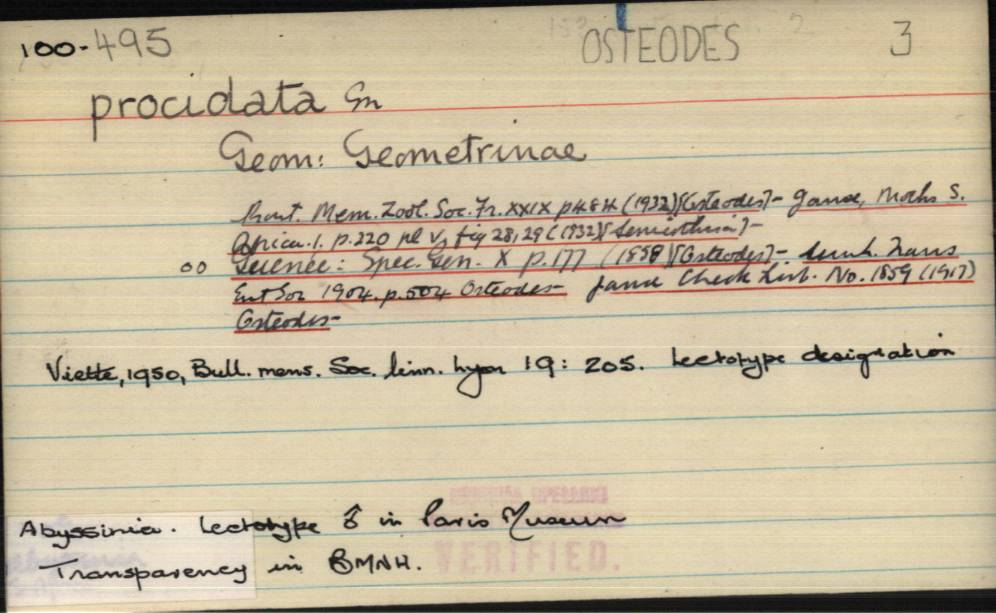 100-495 OSTEODES 3
procidata Gn
Geom: Geometrinae
Prout. Mem. Zool. Soc. Fr. XXIX p484 (1932)[Osteodes]- Janse, Moths S.
Africa. 1. p.220 pl V, fig 28,29 (1932)[Semiothisa]-
oo Guenée: Spec. Gen. X p.177 (1858)[Osteodes]- Swinh. Trans
Ent Soc 1904. p.504 Osteodes- Janse Check List. No. 1859 (1917)
Osteodes-
Viette, 1950, Bull. mens. Soc. linn. Lyon 19: 205. Lectotype designation
SPELLING
Abyssinia. Lectotype ♂ in Paris Museum
VERIFIED.
Transparency in BMNH.